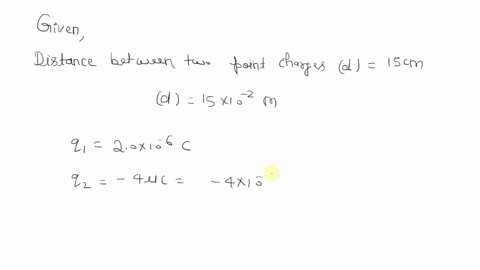 Given,
Distance between two point charges (d) = 15cm
(d) = 15 × 10⁻² m
q₁ = 2.0×10⁻⁶ C
q₂ = - 4μC = - 4×10⁻